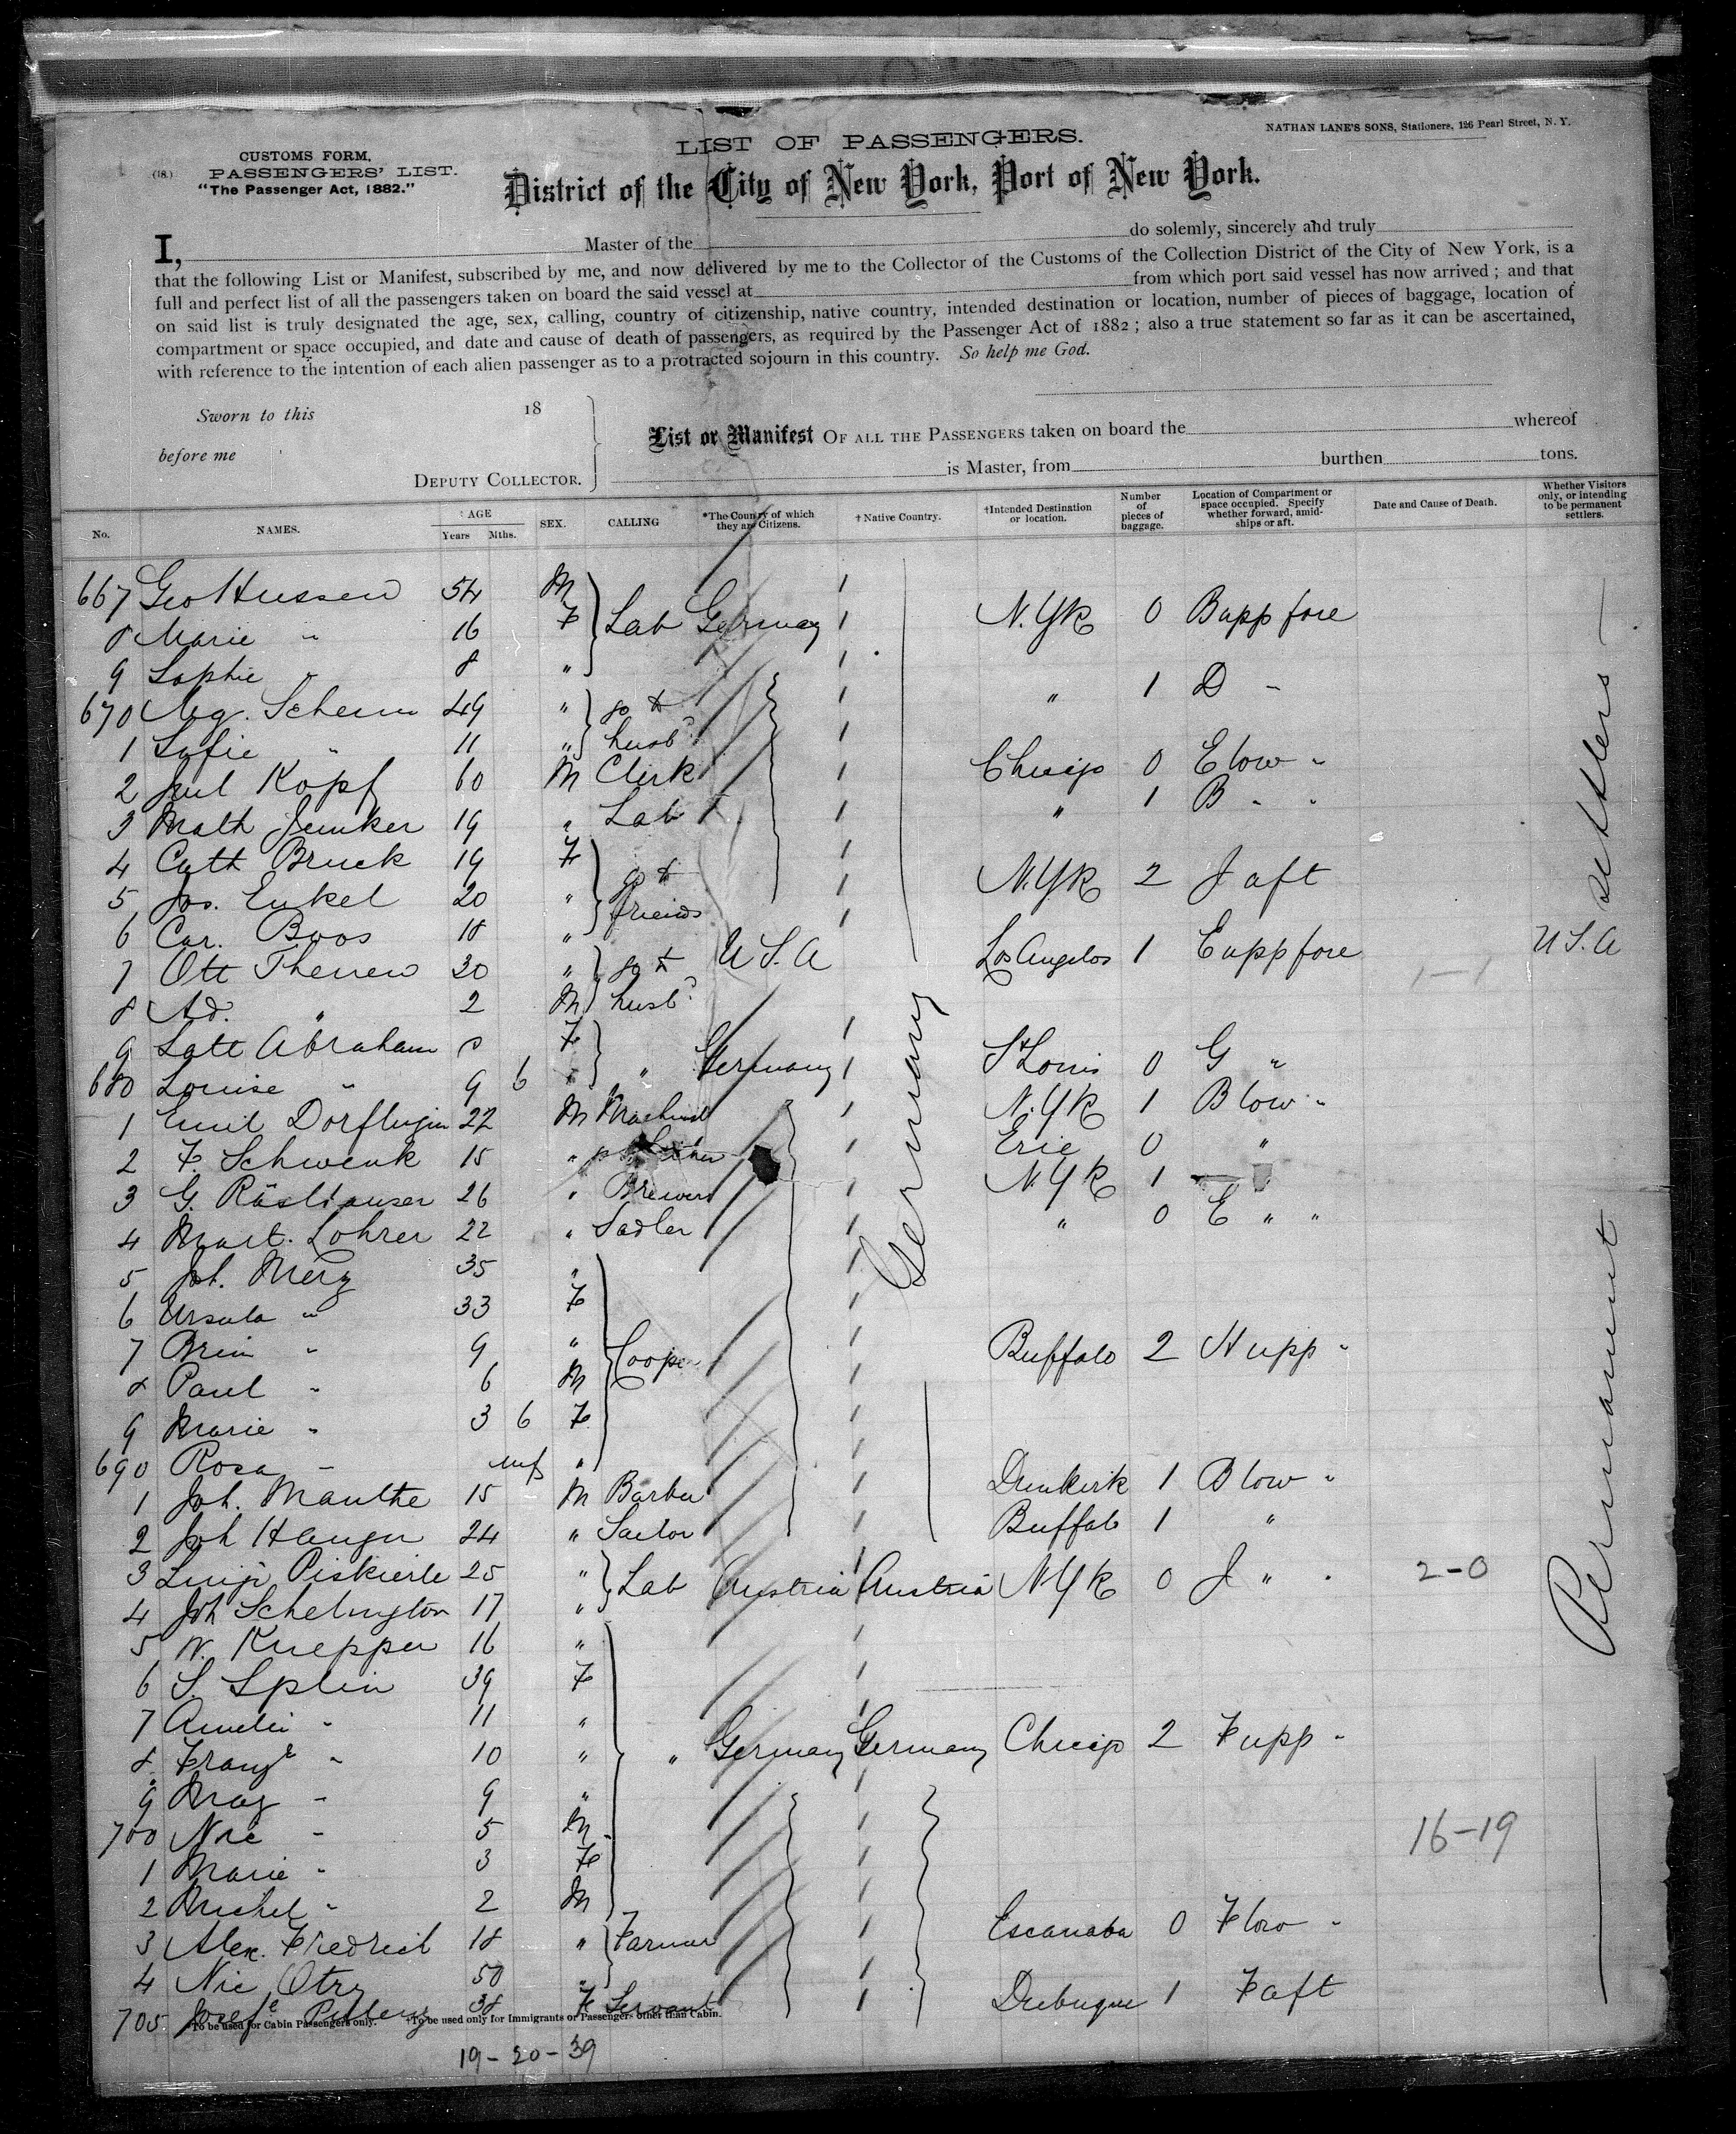 NATHAN LANE'S SONS, Stationers, 126 Pearl Street, N. Y.
(18.)
CUSTOMS FORM,
PASSENGERS' LIST.
"The Passenger Act, 1882."
LIST OF PASSENGERS.
District of the City of New York, Port of New York.
I, Master of the do solemly, sincerely and truly
that the following List or Manifest, subscribed by me, and now delivered by me to the Collector of the Customs of the Collection District of the City of New York, is a
full and perfect list of all the passengers taken on board the said vessel at from which port said vessel has now arrived ; and that
on said list is truly designated the age, sex, calling, country of citizenship, native country, intended destination or location, number of pieces of baggage, location of
compartment or space occupied, and date and cause of death of passengers, as required by the Passenger Act of 1882 ; also a true statement so far as it can be ascertained,
with reference to the intention of each alien passenger as to a protracted sojourn in this country. So help me God.
Sworn to this 18
before me
DEPUTY COLLECTOR.
List or Manifest OF ALL THE PASSENGERS taken on board the whereof
is Master, from burthen tons.
No. NAMES. AGE Years Mths. SEX. CALLING *The Country of which they are Citizens. †Native Country. †Intended Destination or location. Number of pieces of baggage. Location of Compartment or space occupied. Specify whether forward, amidships or aft. Date and Cause of Death. Whether Visitors only, or intending to be permanent settlers.
667 Geo Hussen 54 M
8 Marie " 16 F Lab Germany N.Yk 0 B upp fore
9 Sophie " 8 "
670 Mg. Scherm 49 " go to " 1 D "
1 Sofie " 11 " husbd
2 Jul Kopf 60 M Clerk Chicgo 0 E low "
3 Math Junker 19 " Lab " 1 B " "
4 Cath Bruck 19 F
5 Jos. Enkel 20 " go to friends N.Yk 2 J aft
6 Car. Boos 18 "
7 Ott Therren 30 " go to U S. A Los Angelos 1 E upp fore 1-1 U S. A
8 Ad. " 2 M husbd
9 Latt Abraham F
680 Louise " 9 6 " " Germany St Louis 0 G "
1 Emil Dorflinger 22 M Machinst N.Yk 1 B low "
2 F. Schwenk 15 " Erie 0 "
3 G. Rösshauser 26 " Brewer N.Yk 1
4 Mart. Lohrer 22 " Sadler " 0 E " "
5 Joh. Merz 35 "
6 Ursula " 33 F
7 " 9 " Cooper Buffalo 2 H upp "
8 Paul " 6 M
9 Marie " 3 6 F
690 Rosa " inf "
1 Joh. Manthe 15 M Barber Dunkirk 1 B low "
2 Joh Hauger 24 " Buffalo 1 "
3 Luigi 25 " Lab Austria Austria N.Yk 0 J " " 2-0
4 Joh Schelington 17 "
5 N. Knepper 16 "
6 S. Splin 39 F
7 Amelie " 11 "
8 Franz " 10 " " Germany Germany Chicgo 2 F upp "
9 " 9 "
700 Nic " 5 M 16-19
1 Marie " 3 F
2 Michel " 2 M
3 Alex. Fredrich 18 " Farmer Escanaba 0 F low "
4 Nic 50 "
705 38 F Servant Dubuque 1 F aft
Germany
Permanent settlers
*To be used for Cabin Passengers only. †To be used only for Immigrants or Passengers other than Cabin.
19-20-39